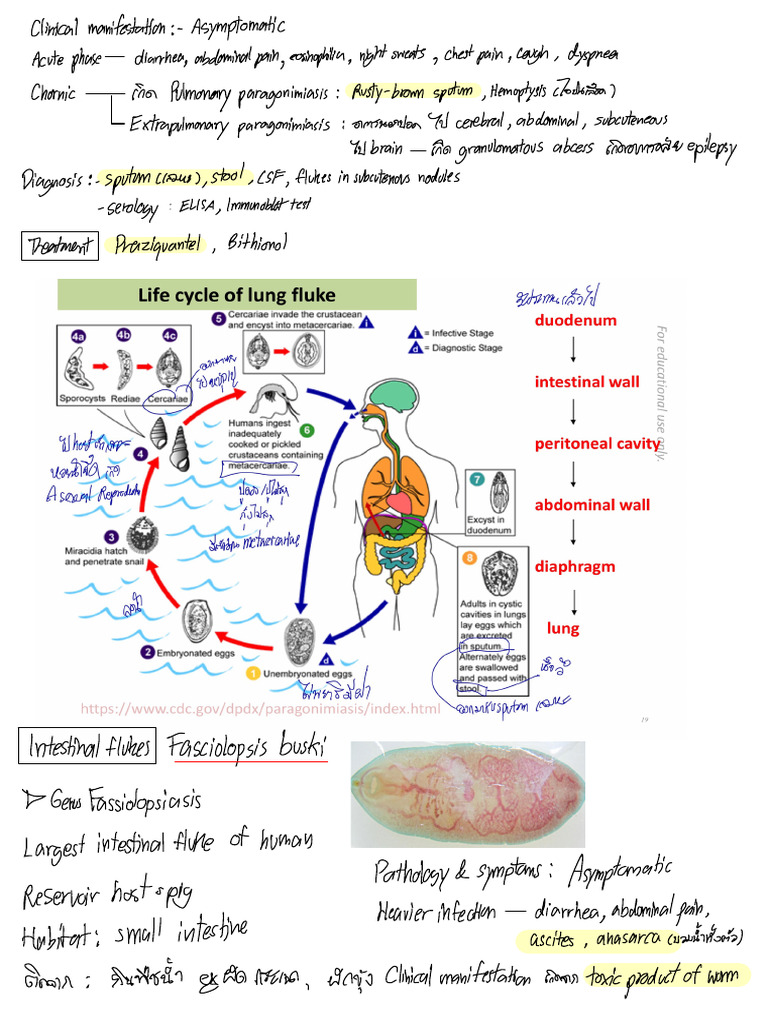 Clinical manifestation :- Asymptomatic
Acute phase — diarrhea, abdominal pain, eosinophilia, night sweats, chest pain, cough, dyspnea
Chornic — เกิด Pulmonary paragonimiasis : Rusty-brown sputum, Hemoptysis (ไอเป็นเลือด)
Extrapulmonary paragonimiasis : ไป cerebral, abdominal, subcutaneous
ไป brain — เกิด granulomatous abcers epilepsy
Diagnosis :- sputum (เสมหะ), stool, CSF, flukes in subcutanous nodules
- serology : ELISA, Immunoblot test
Treatment Praziquantel, Bithionol
Life cycle of lung fluke
4a 4b 4c
Sporocysts Rediae Cercariae
5 Cercariae invade the crustacean
and encyst into metacercariae. i
i = Infective Stage
d = Diagnostic Stage
6
Humans ingest
inadequately
cooked or pickled
crustaceans containing
metacercariae.
ปูดอง ปูไม่สุก
กุ้งไม่สุก
metacercariae
4
Asexual Reproduction
3
Miracidia hatch
and penetrate snail
2 Embryonated eggs
1 Unembryonated eggs
d
7
Excyst in
duodenum
8
Adults in cystic
cavities in lungs
lay eggs which
are excreted
in sputum.
Alternately eggs
are swallowed
and passed with
stool.
duodenum
intestinal wall
peritoneal cavity
abdominal wall
diaphragm
lung
For educational use only.
https://www.cdc.gov/dpdx/paragonimiasis/index.html
19
Intestinal flukes Fasciolopsis buski
Genus Fassiolopsiasis
Largest intestinal fluke of human
Reservoir host : pig
Habitat : small intestine
Pathology & symptoms : Asymptomatic
Heavier infection — diarrhea, abdominal pain,
ascites, anasarca (บวมน้ำทั้งตัว)
ติดจาก : กินพืชน้ำ ex ผักกระเฉด, ผักบุ้ง Clinical manifestation เกิดจาก toxic product of worm